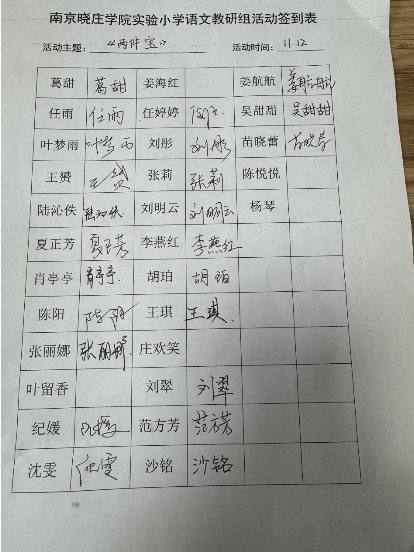 南京晓庄学院实验小学语文教研组活动签到表
活动主题：《两件宝》 活动时间：11.12
葛甜 葛甜 姜海红 姜航航 姜航航
任雨 任雨 任婷婷 吴甜甜 吴甜甜
叶梦雨 叶梦雨 刘彤 刘彤 苗晓蕾 苗晓蕾
王赟 王赟 张莉 张莉 陈悦悦
陆沁佚 陆沁佚 刘明云 刘明云 杨琴
夏正芳 夏正芳 李燕红 李燕红
肖亭亭 肖亭亭 胡珀 胡珀
陈阳 陈阳 王琪 王琪
张丽娜 张丽娜 庄欢笑
叶留香 刘翠 刘翠
纪媛 纪媛 范方芳 范方芳
沈雯 沈雯 沙铭 沙铭